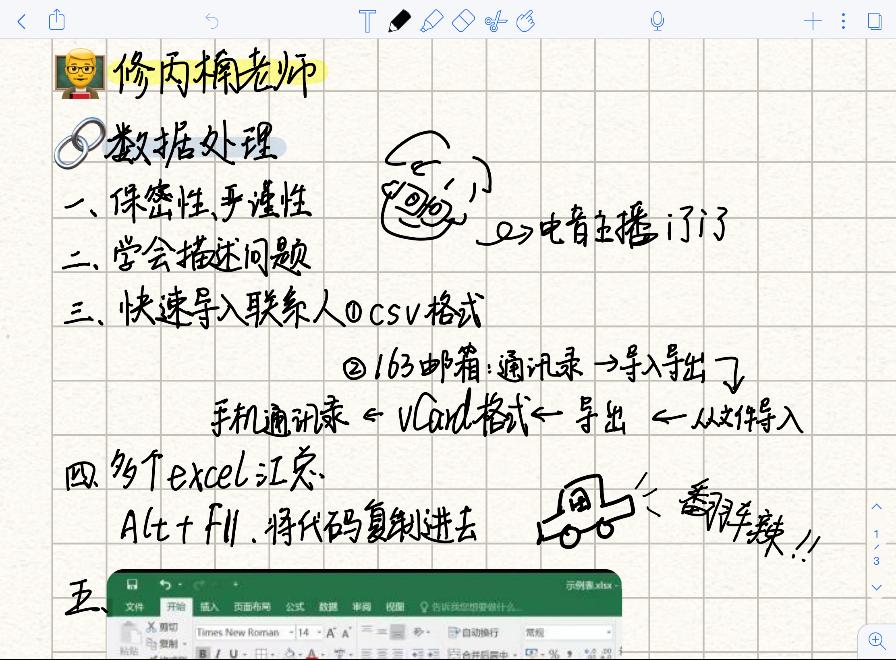 修丙楠老师
数据处理
一、保密性、严谨性
电音主播 i了i了
二、学会描述问题
三、快速导入联系人①csv格式
②163邮箱:通讯录→导入导出
手机通讯录 ← vCard格式 ← 导出 ← 从文件导入
四、多个excel汇总.
Alt+F11.将代码复制进去
翻车辣!!
1
/
3
五、
示例表.xlsx -
文件 开始 插入 页面布局 公式 数据 审阅 视图 告诉我您想要做什么...
粘贴 剪切 Times New Roman 14 A A 自动换行 常规
复制 B I U A 合并后居中 %